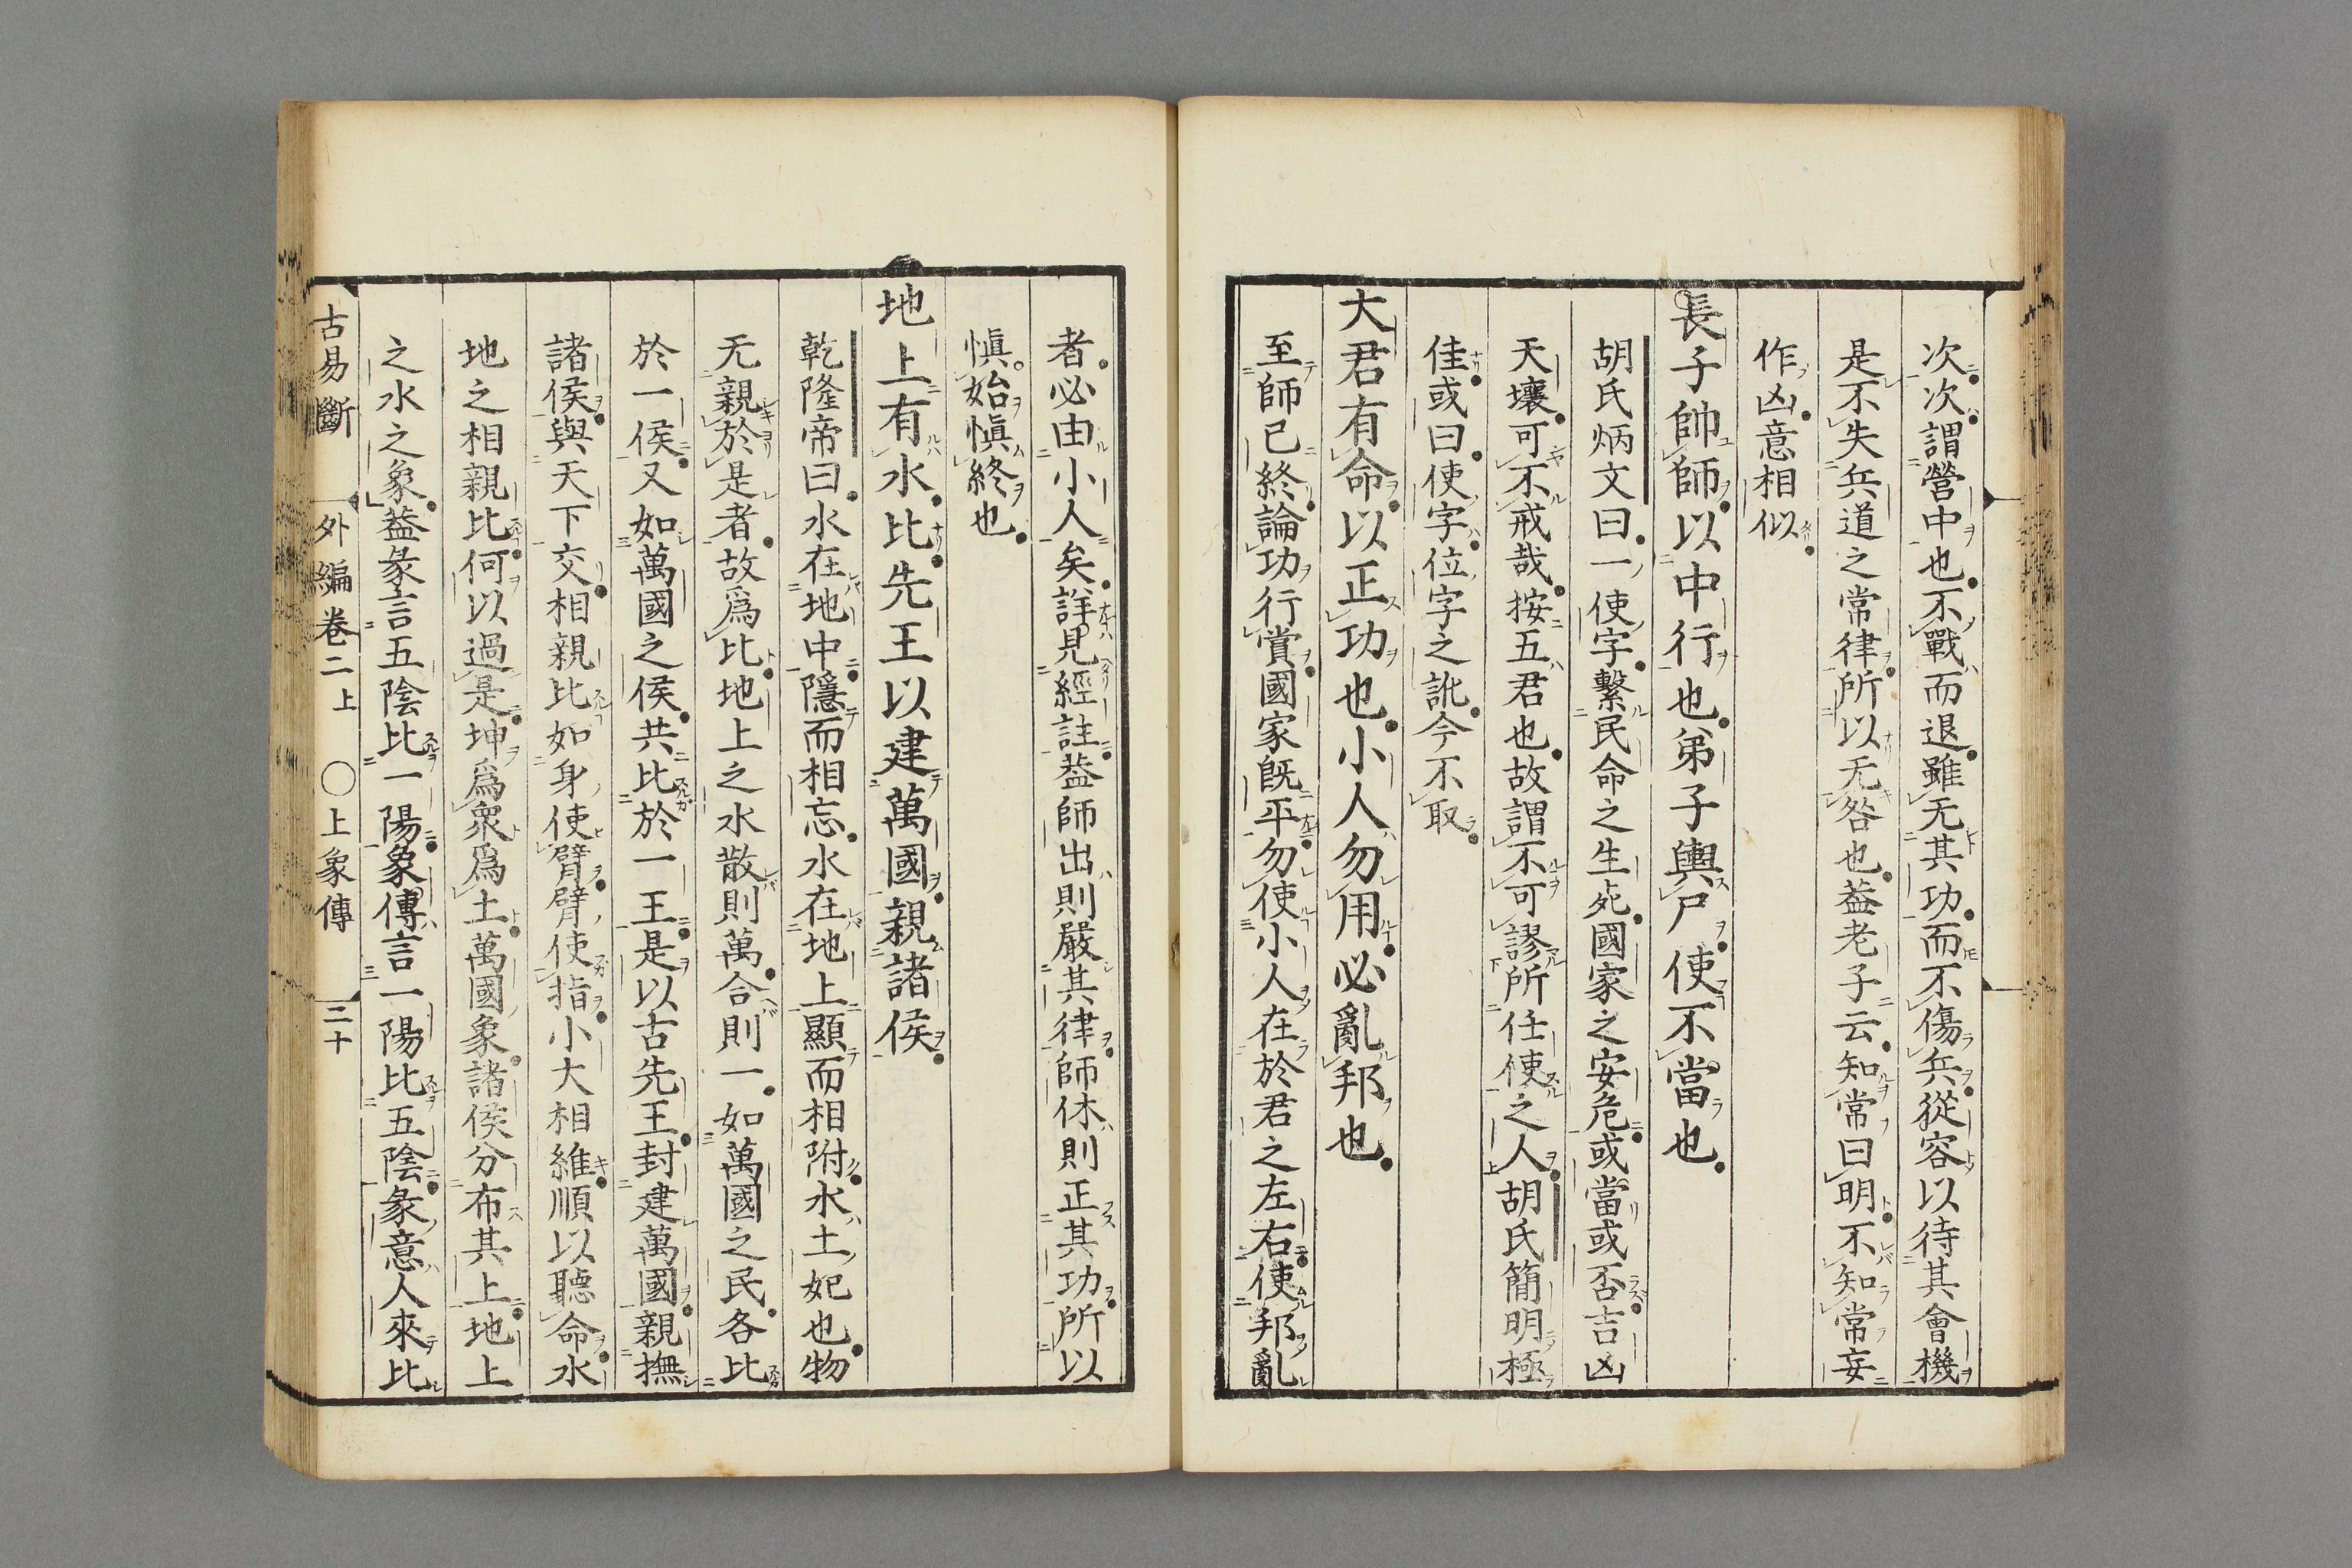 次次謂營中也不戰而退雖无其功而不傷兵從容以待其會機
是不失兵道之常律所以无咎也葢老子云知常曰明不知常妄
作凶意相似
長子帥師以中行也弟子輿尸使不當也
胡氏炳文曰一使字繫民命之生死國家之安危或當或否吉凶
天壤可不戒哉按五君也故謂不可謬所任使之人胡氏簡明極
佳或曰使字位字之訛今不取
大君有命以正功也小人勿用必亂邦也
至師已終論功行賞國家既平勿使小人在於君之左右使邦亂
者必由小人矣詳見經註葢師出則嚴其律師休則正其功所以
愼始愼終也
地上有水比先王以建萬國親諸侯
乾隆帝曰水在地中隱而相忘水在地上顯而相附水土妃也物
无親於是者故爲比地上之水散則萬合則一如萬國之民各比
於一侯又如萬國之侯共比於一王是以古先王封建萬國親撫
諸侯與天下交相親比如身使臂臂使指小大相維順以聽命水
地之相親比何以過是坤爲衆爲土萬國象諸侯分布其上地上
之水之象葢彖言五陰比一陽象傳言一陽比五陰彖意人來比
古易斷 外編卷二上 ○上象傳 二十